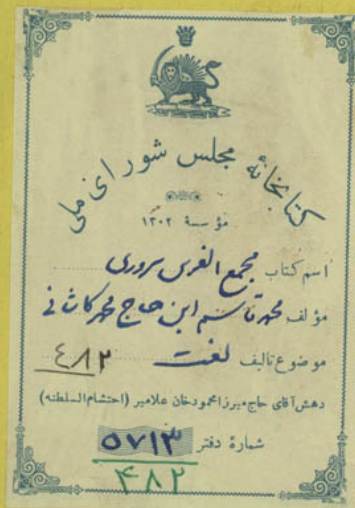 کتابخانهٔ مجلس شورای ملی
مؤسسهٔ ۱۳۰۲
اسم کتاب مجمع الفرس سروری
مؤلف محمد قاسم ابن حاج محمد کاشانی
موضوع تالیف لغت ۴۸۲
دهش آقای حاج میرزا محمود خان علامیر (احتشام السلطنه)
شمارهٔ دفتر ۵۷۱۳
۴۸۲